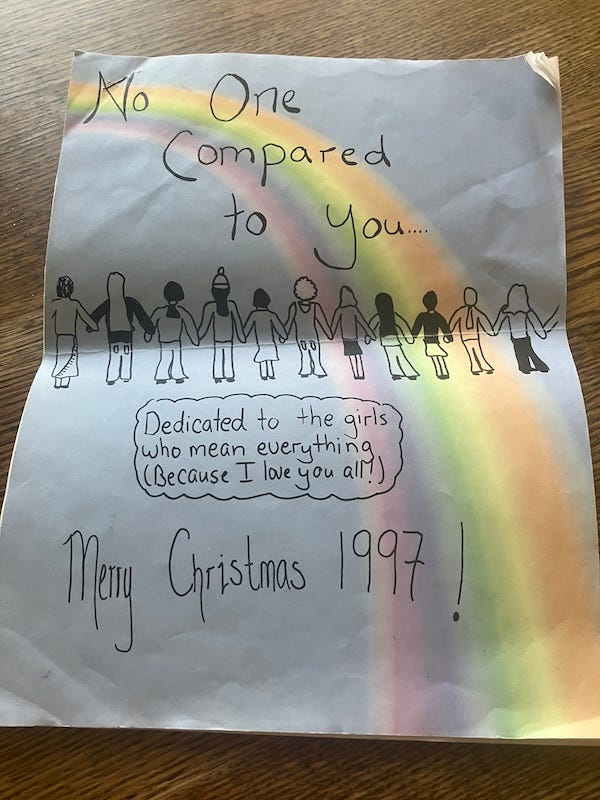 No One
Compared
to You....
Dedicated to the girls
who mean everything
(Because I love you all!)
Merry Christmas 1997!